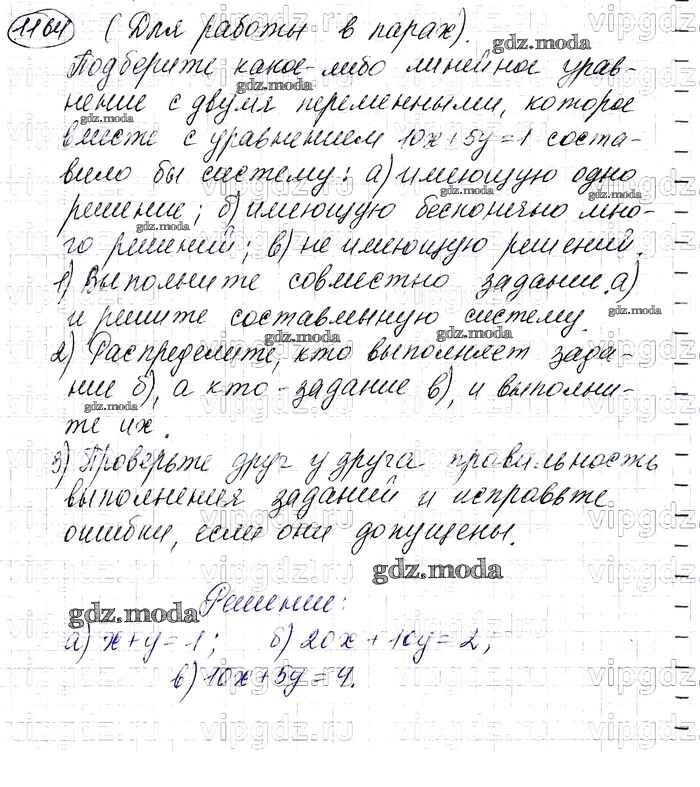 1164 (Для работы в парах).
Подберите какое-либо линейное урав-
нение с двумя переменными, которое
вместе с уравнением 10x+5y=1 соста-
вило бы систему: а) имеющую одно
решение; б) имеющую бесконечно мно-
го решений; в) не имеющую решений.
1) Выполните совместно задание а)
и решите составленную систему.
2) Распределите, кто выполняет зада-
ние б), а кто - задание в), и выполни-
те их.
3) Проверьте друг у друга правильность
выполнения заданий и исправьте
ошибки, если они допущены.
Решение:
а) x+y=1; б) 20x+10y=2;
в) 10x+5y=4.
gdz.moda
vipgdz.ru